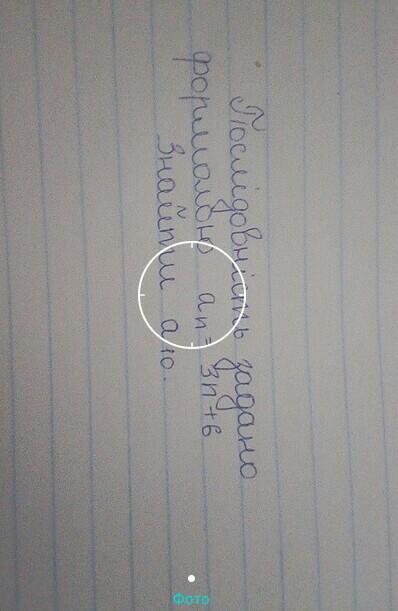 Послідовність задано
формолою an = 3n+6
Знайти a10.
Фото